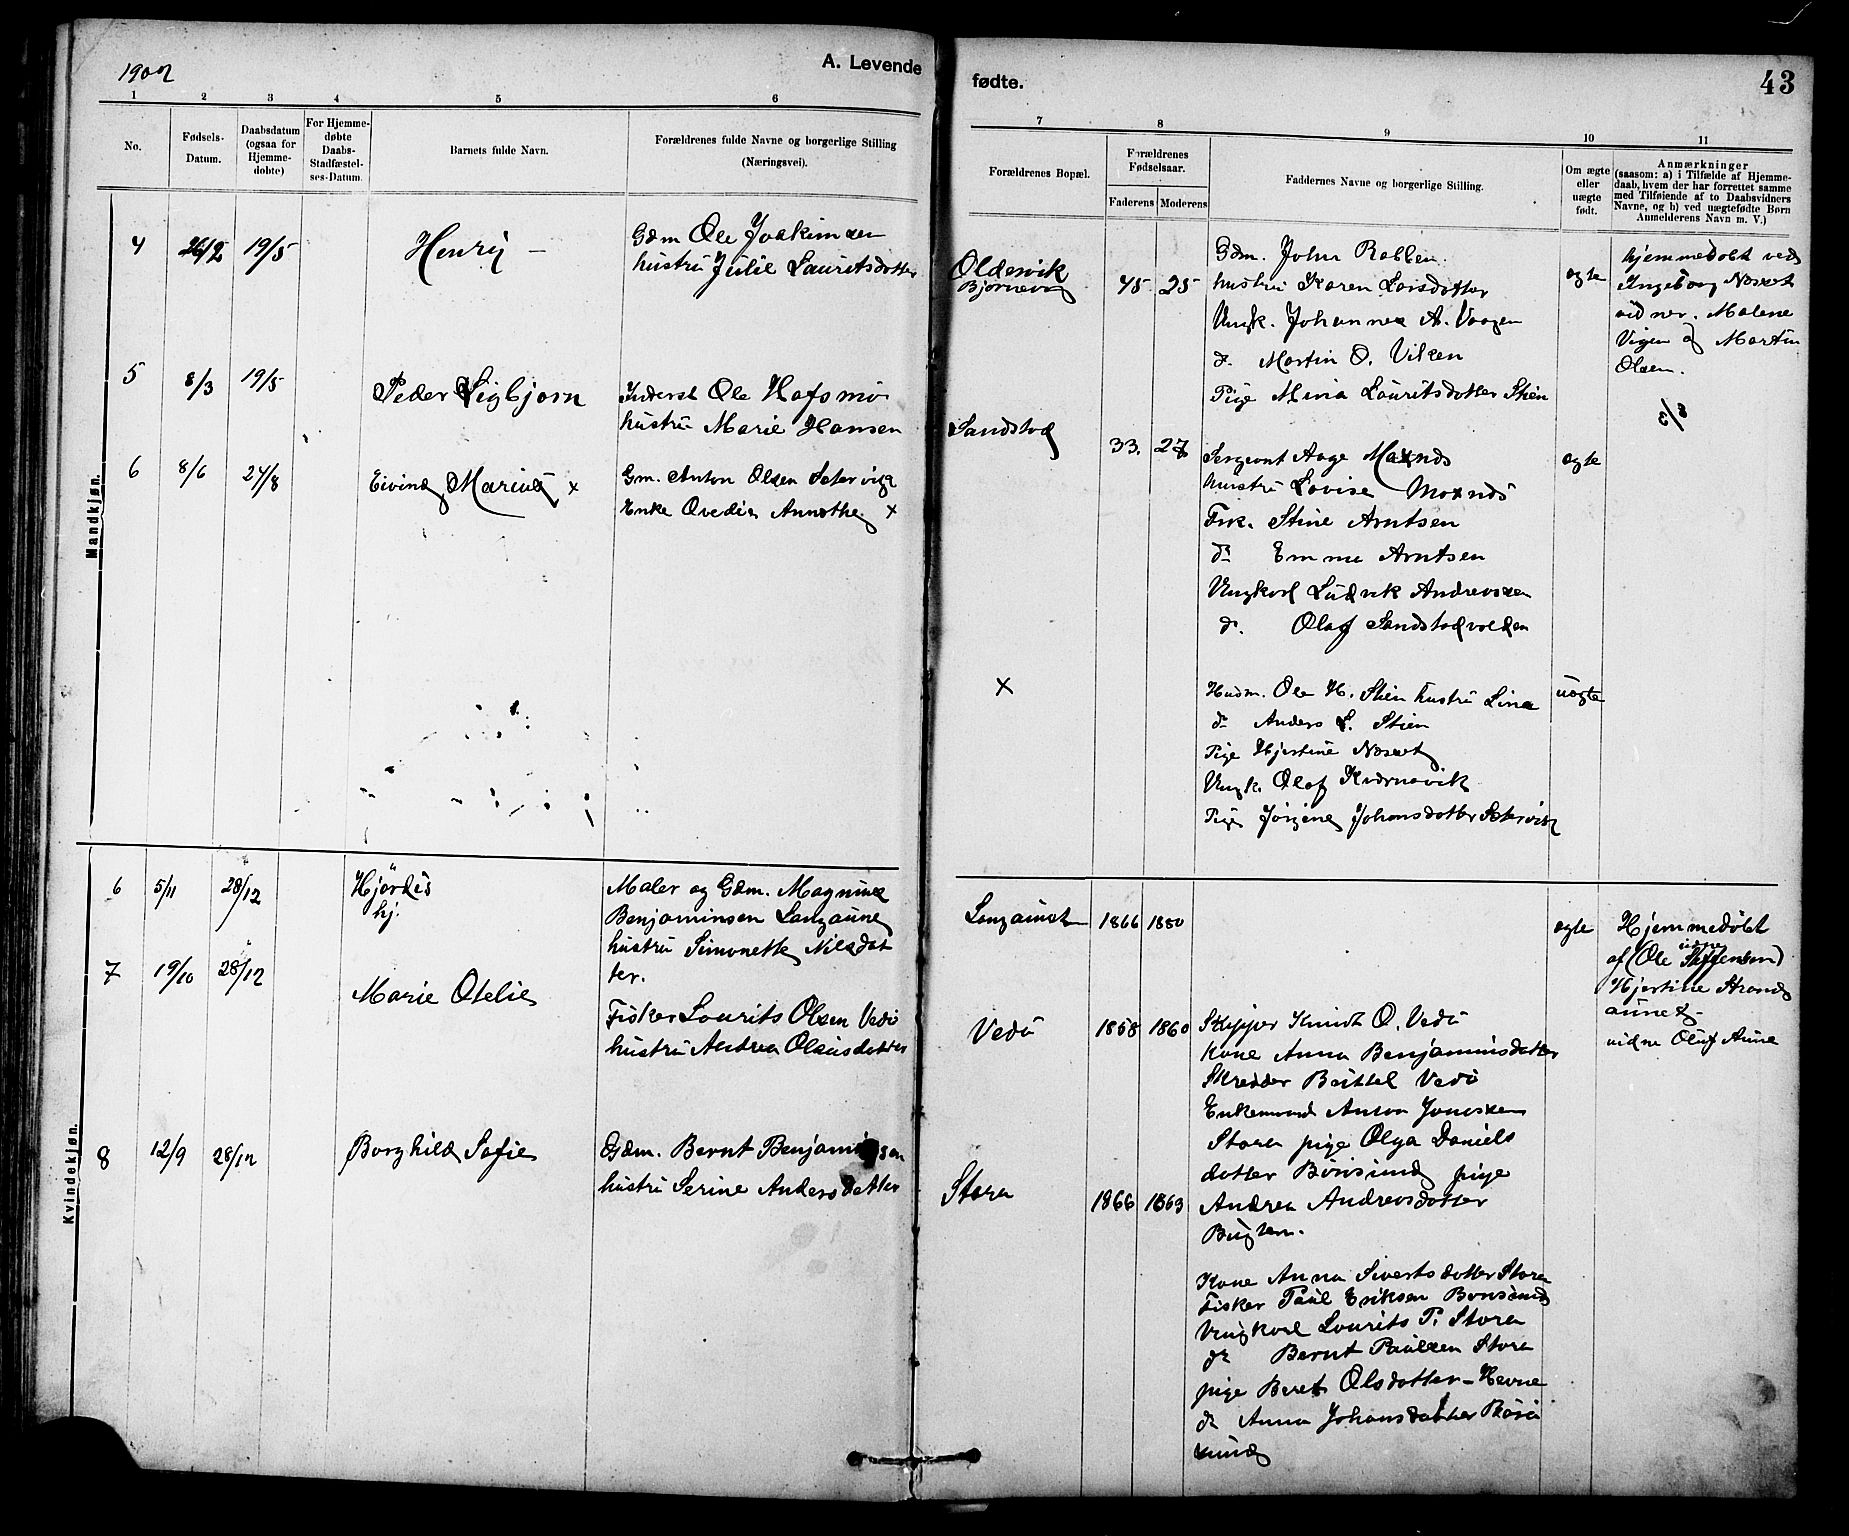 1902
A. Levende
fødte.
43
1 2 3 4 5 6 7 8 9 10 11
No.
Fødsels-
Datum.
Daabsdatum
(ogsaa for
Hjemme-
døbte)
For Hjemme-
døbte
Daabs-
Stadfæstel-
ses-Datum.
Barnets fulde Navn.
Forældrenes fulde Navne og borgerlige Stilling
(Næringsvei).
Forældrenes Bopæl.
Forældrenes
Fødselsaar.
Faderens Moderens
Faddernes Navne og borgerlige Stilling.
Om ægte
eller
uægte
født.
Anmærkninger
(saasom: a) i Tilfælde af Hjemme-
daab, hvem der har forrettet samme
med Tilføiende af to Daabsvidners
Navne, og b) ved uægtefødte Børn
Anmelderens Navn m. V.)
Mandkjøn.
4 26/2 19/5 Henry —
Gdm Ole Joakimsen
hustru Julie Lauritsdotter
Oldervik
45 25
Gdm. John
hustru Karen Larsdotter
Ungk. Johannes A. Vaagen
do Martin O. Viken
Pige Mina Lauritsdotter Stien
ægte
hjemmedøbt ved
Ingeborg Næsset
vidner. Malene
Vigen og Martin
Olsen.
8/3
5 8/3 19/5 Peder Sigbjørn
Inderst Ole Hofsmo
hustru Marie Hansen
Sandstad
33. 27
Sergeant Aage Moxnæs
hustru Lovise Moxnæs
Frk. Stine Arntsen
do Emma Arntsen
Ungkarl Ludvik Andreassen
do. Olaf Sandstadvolden
ægte
6 8/6 24/8 Eivind Marius x
Gm. Anton Olsen Setervige
Enke Ovedie Annethe x
x
Husm. Ole H. Stien hustru Lina
do Anders L. Stien
Pige Hjertine Næsset
Ungk. Olaf Kværnavik
Pige Jørgine Johansdotter Setervik
uægte
Kvindekjøn.
6 5/11 28/12 Hjördis
hj.
Maler og Gdm. Magnus
Benjaminsen Langaune
hustru Simonette Nilsdot
ter.
Langaunet 1866 1880
ægte
Hjemmedøbt
af (Ole Steffensen)
vidne
Hjertine Strand
aunet
vidne Oluf Aune
7 19/10 28/12 Marie Otelie
Fisker Laurits Olsen Vedö
hustru Andrea Olausdotter
Vedö 1858 1860
Skipper Knudt O. Vedö
Kone Anna Benjaminsdotter
Skredder Bertel Vedö
Enkemand Anton Jonassen
Storø pige Olga Daniels
dotter Börösund pige
Andrea Andreasdotter
8 12/9 28/12 Borghild Sofie
Gdm. Bernt Benjaminsen
hustru Serine Andersdotter
Storø 1866 1863
Kone Anna Sivertsdotter Storø
Fisker Paul Eriksen Börösund
Ungkarl Laurits P. Storø
do Bernt Paulsen Storø
pige Beret Olsdotter - Hevne
do Anna Johansdotter Börö
sund